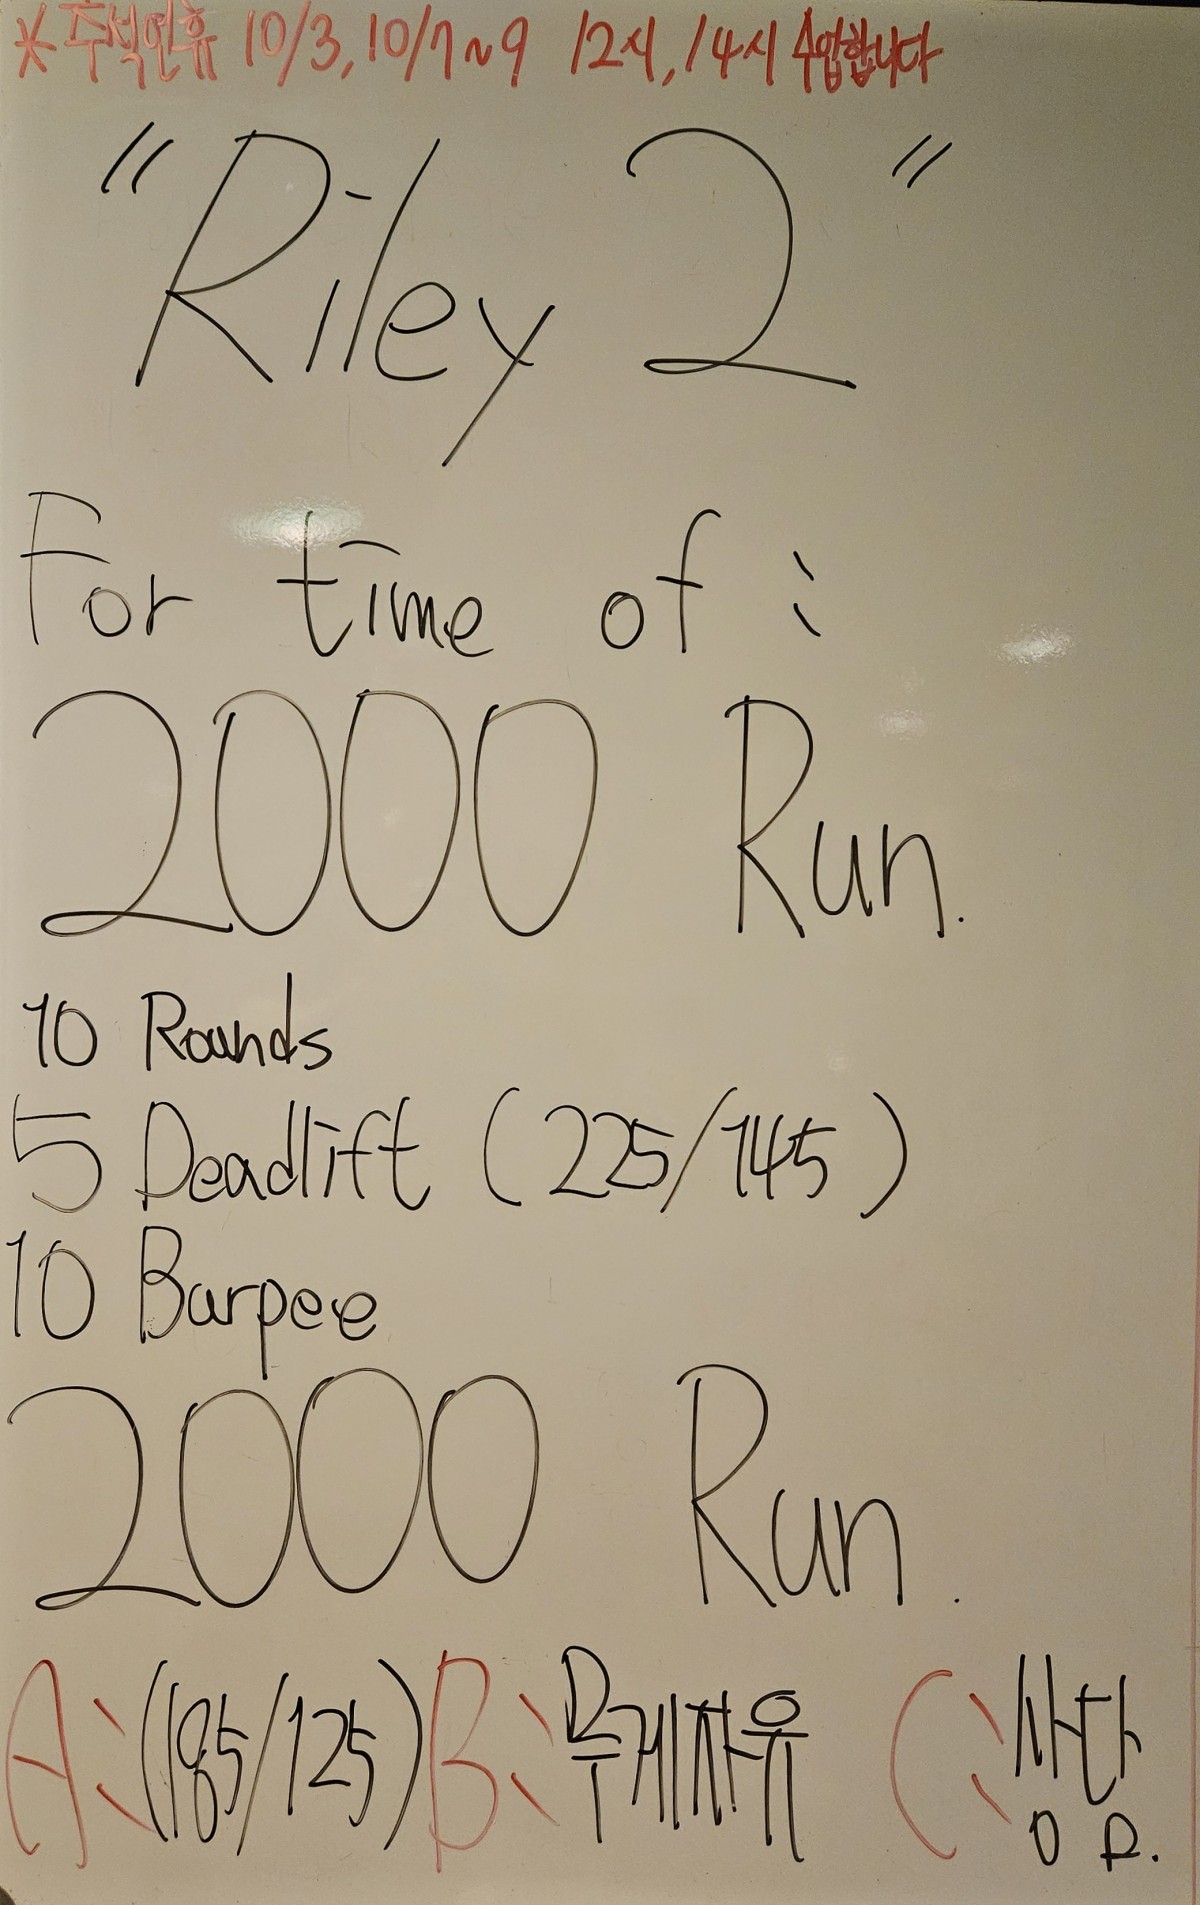 * 추석연휴 10/3, 10/7~9 12시, 14시 수업합니다
"Riley 2"
For time of :
2000 Run.
10 Rounds
5 Deadlift (225/145)
10 Burpee
2000 Run.
A: (185/125) B: 무게자유 C: 상담